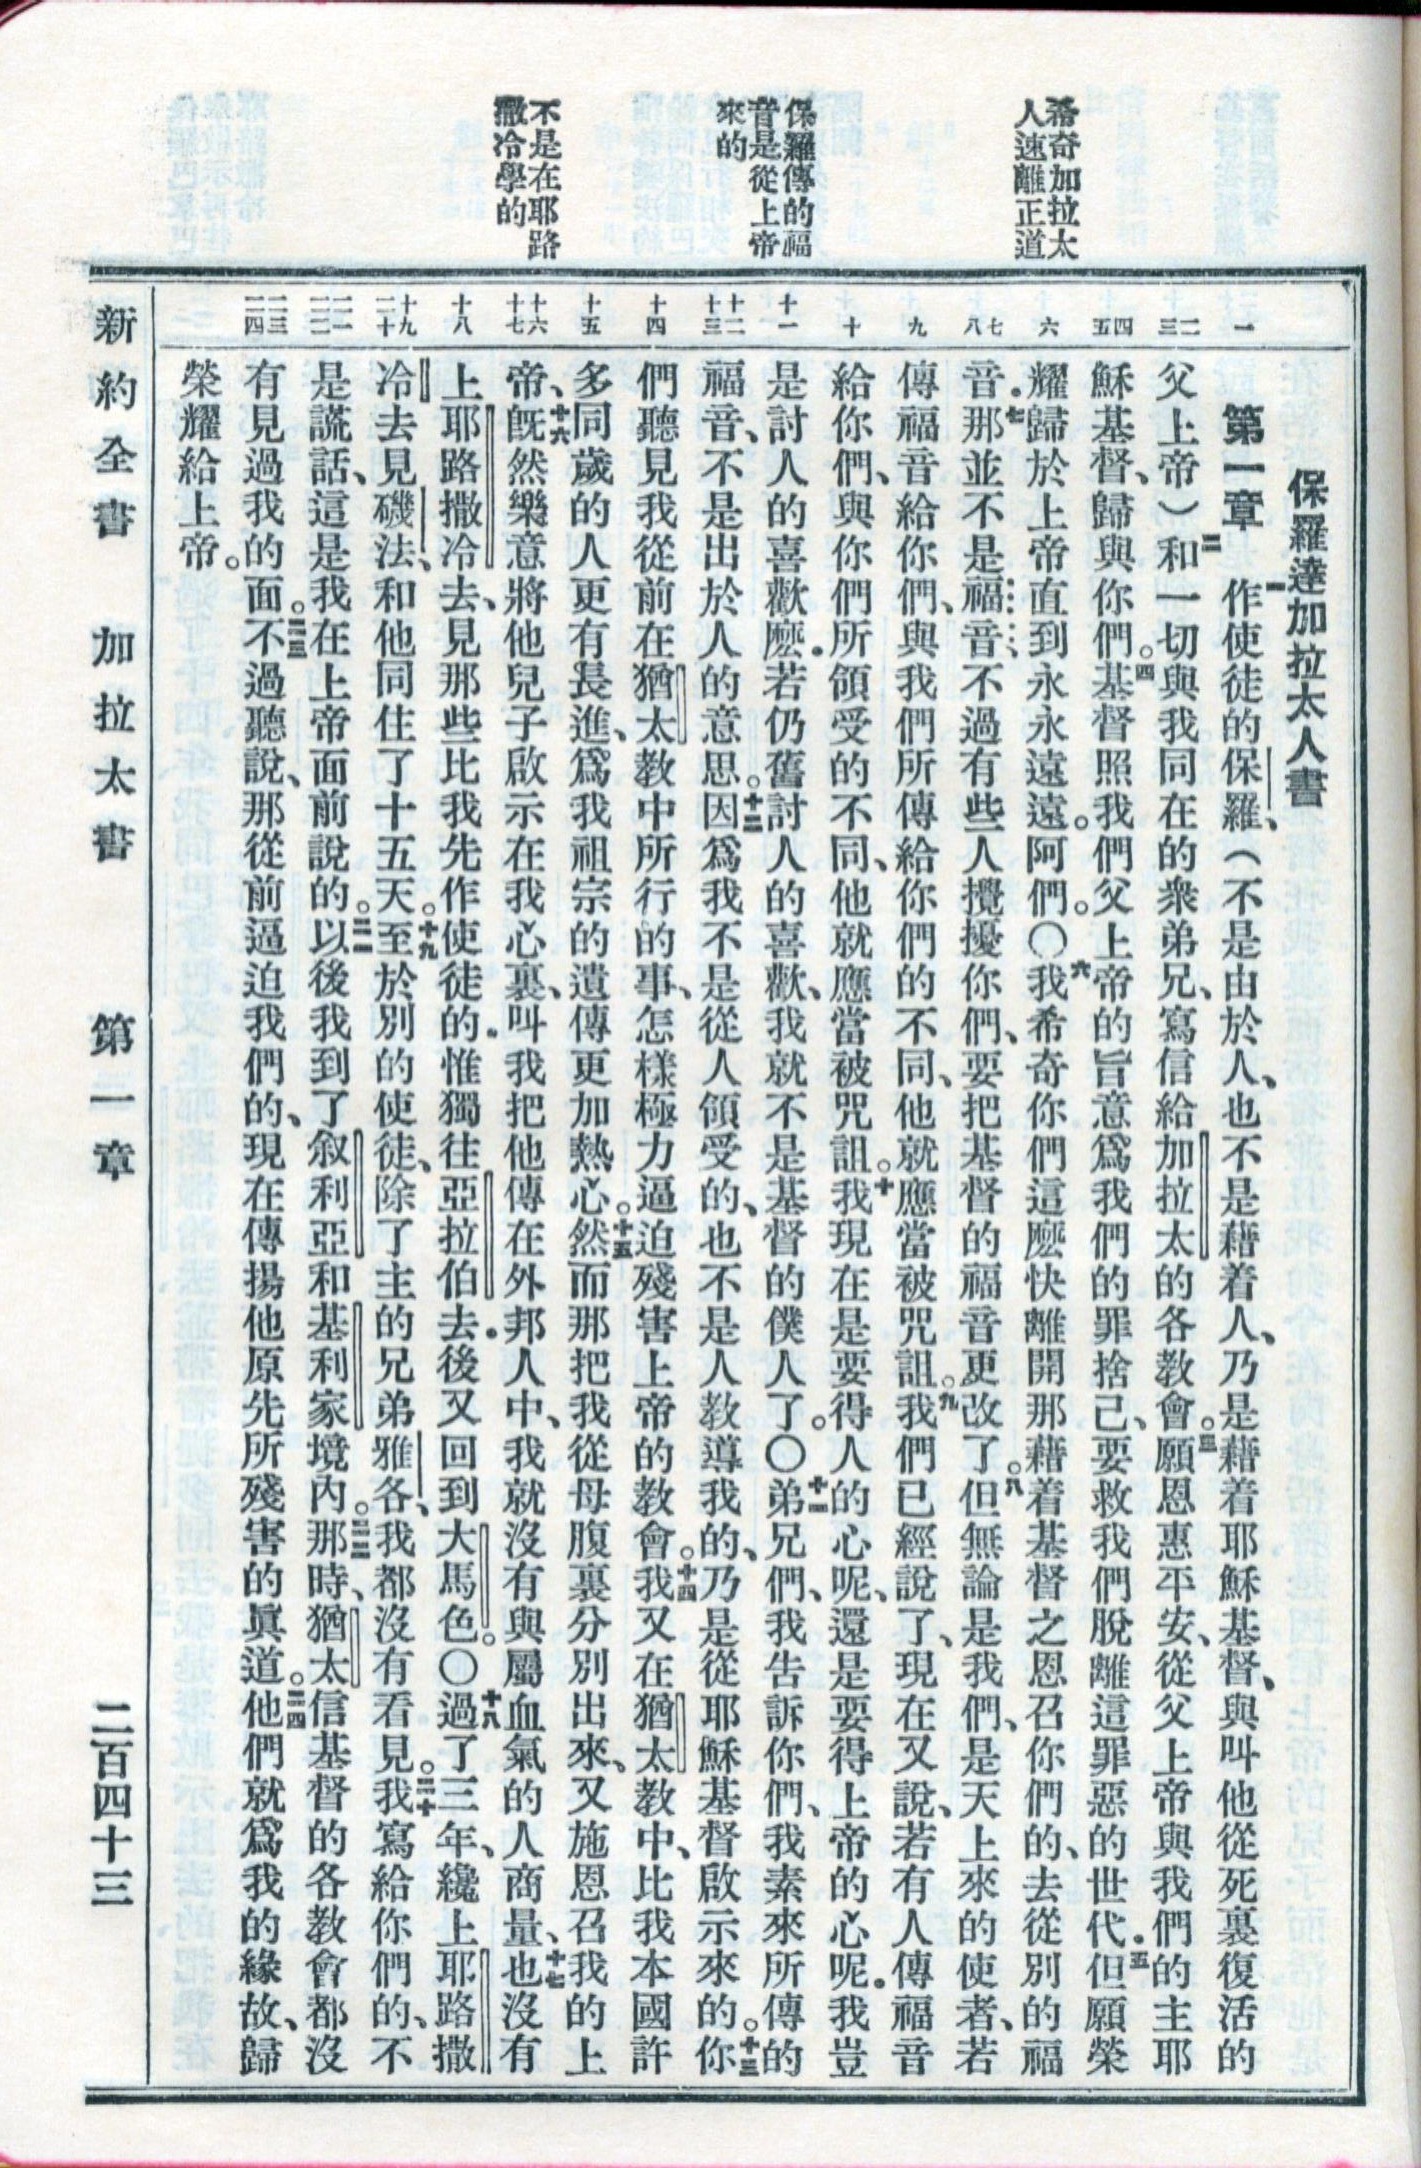 希奇加拉太
人速離正道
保羅傳的福
音是從上帝
來的
不是在耶路
撒冷學的
一
二三
四五
六
七八
九
十
十一
十二十三
十四
十五
十六十七
十八
十九二十
二一二二
二三二四
保羅達加拉太人書
第一章 一作使徒的保羅、（不是由於人、也不是藉着人、乃是藉着耶穌基督、與叫他從死裏復活的
父上帝）二和一切與我同在的衆弟兄、寫信給加拉太的各教會。三願恩惠平安、從父上帝與我們的主耶
穌基督、歸與你們。四基督照我們父上帝的旨意爲我們的罪捨己、要救我們脫離這罪惡的世代．五但願榮
耀歸於上帝直到永永遠遠。阿們。〇六我希奇你們這麽快離開那藉着基督之恩召你們的、去從別的福
音．七那並不是福音、不過有些人攪擾你們、要把基督的福音更改了。八但無論是我們、是天上來的使者、若
傳福音給你們、與我們所傳給你們的不同、他就應當被咒詛。九我們已經說了、現在又說、若有人傳福音
給你們、與你們所領受的不同、他就應當被咒詛。十我現在是要得人的心呢、還是要得上帝的心呢．我豈
是討人的喜歡麽．若仍舊討人的喜歡、我就不是基督的僕人了。〇十一弟兄們、我告訴你們、我素來所傳的
福音、不是出於人的意思。十二因爲我不是從人領受的、也不是人教導我的、乃是從耶穌基督啟示來的。十三你
們聽見我從前在猶太教中所行的事、怎樣極力逼迫殘害上帝的教會。十四我又在猶太教中、比我本國許
多同歲的人更有長進、爲我祖宗的遺傳更加熱心。十五然而那把我從母腹裏分別出來、又施恩召我的上
帝、十六旣然樂意將他兒子啟示在我心裏、叫我把他傳在外邦人中、我就沒有與屬血氣的人商量、十七也沒有
上耶路撒冷去、見那些比我先作使徒的．惟獨往亞拉伯去．後又回到大馬色。〇十八過了三年、纔上耶路撒
冷去見磯法、和他同住了十五天。十九至於別的使徒、除了主的兄弟雅各、我都沒有看見。二十我寫給你們的、不
是謊話、這是我在上帝面前說的。二一以後我到了叙利亞和基利家境內。二二那時、猶太信基督的各教會都沒
有見過我的面。二三不過聽說、那從前逼迫我們的、現在傳揚他原先所殘害的眞道。二四他們就爲我的緣故、歸
榮耀給上帝。
新約全書 加拉太書 第一章 二百四十三